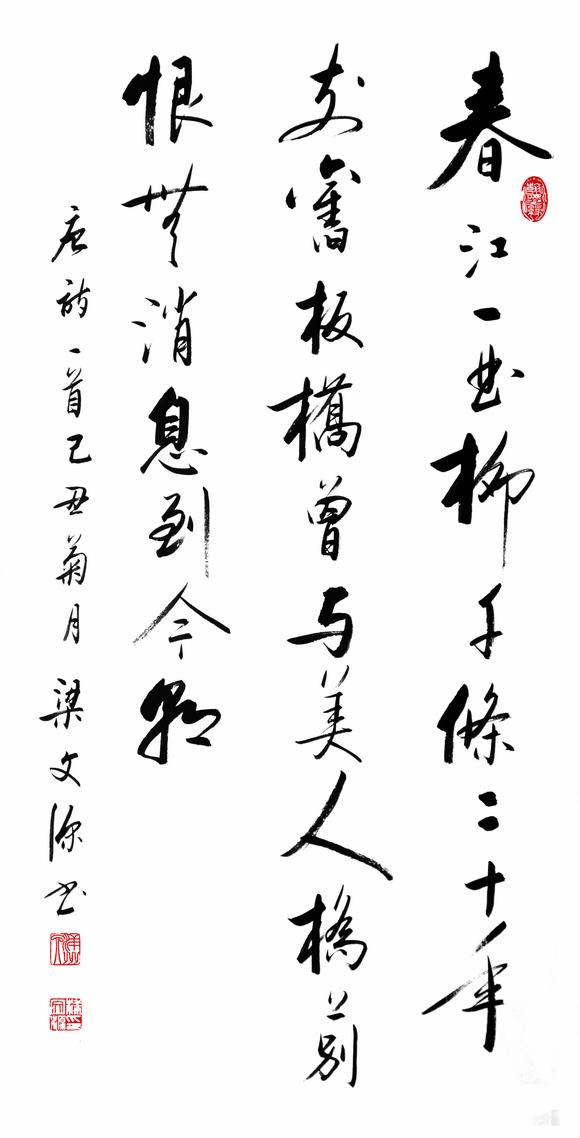 春江一曲柳千條二十年
前舊板橋曾与美人橋上別
恨無消息到今朝
唐詩一首己丑菊月梁文源書